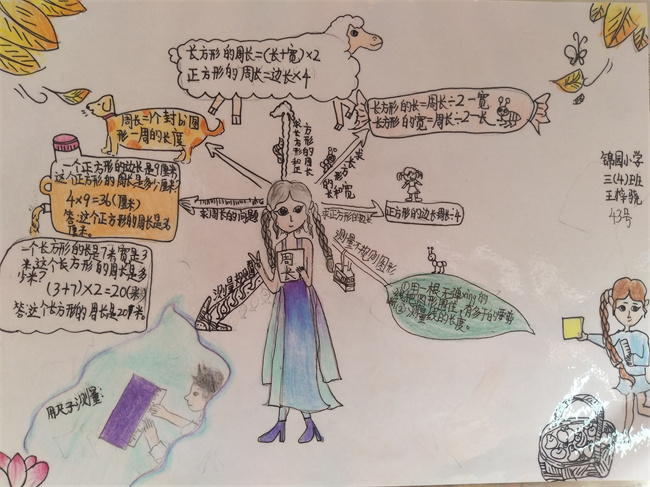 长方形的周长=(长+宽)×2
正方形的周长=边长×4
周长=一个封bì图
形一周的长度
求长方形和正
方形的周长
求长方形
的长和宽
长方形的长=周长÷2-宽
长方形的宽=周长÷2-长
一个正方形的边长是9厘米
这个正方形的周长是多少厘米?
4×9=36(厘米)
答:这个正方形的周长是36
厘米。
求周长的问题
求正方形的边长
正方形的边长=周长÷4
锦园小学
三(4)班
43号
一个长方形的长是7米宽是3
米,这个长方形的周长是多
少米?
(3+7)×2=20(米)
答:这个长方形的周长是20厘米。
周长
测量规则图形
测量不规则图形
①用一根
②测量线的长度。
用尺子测量: